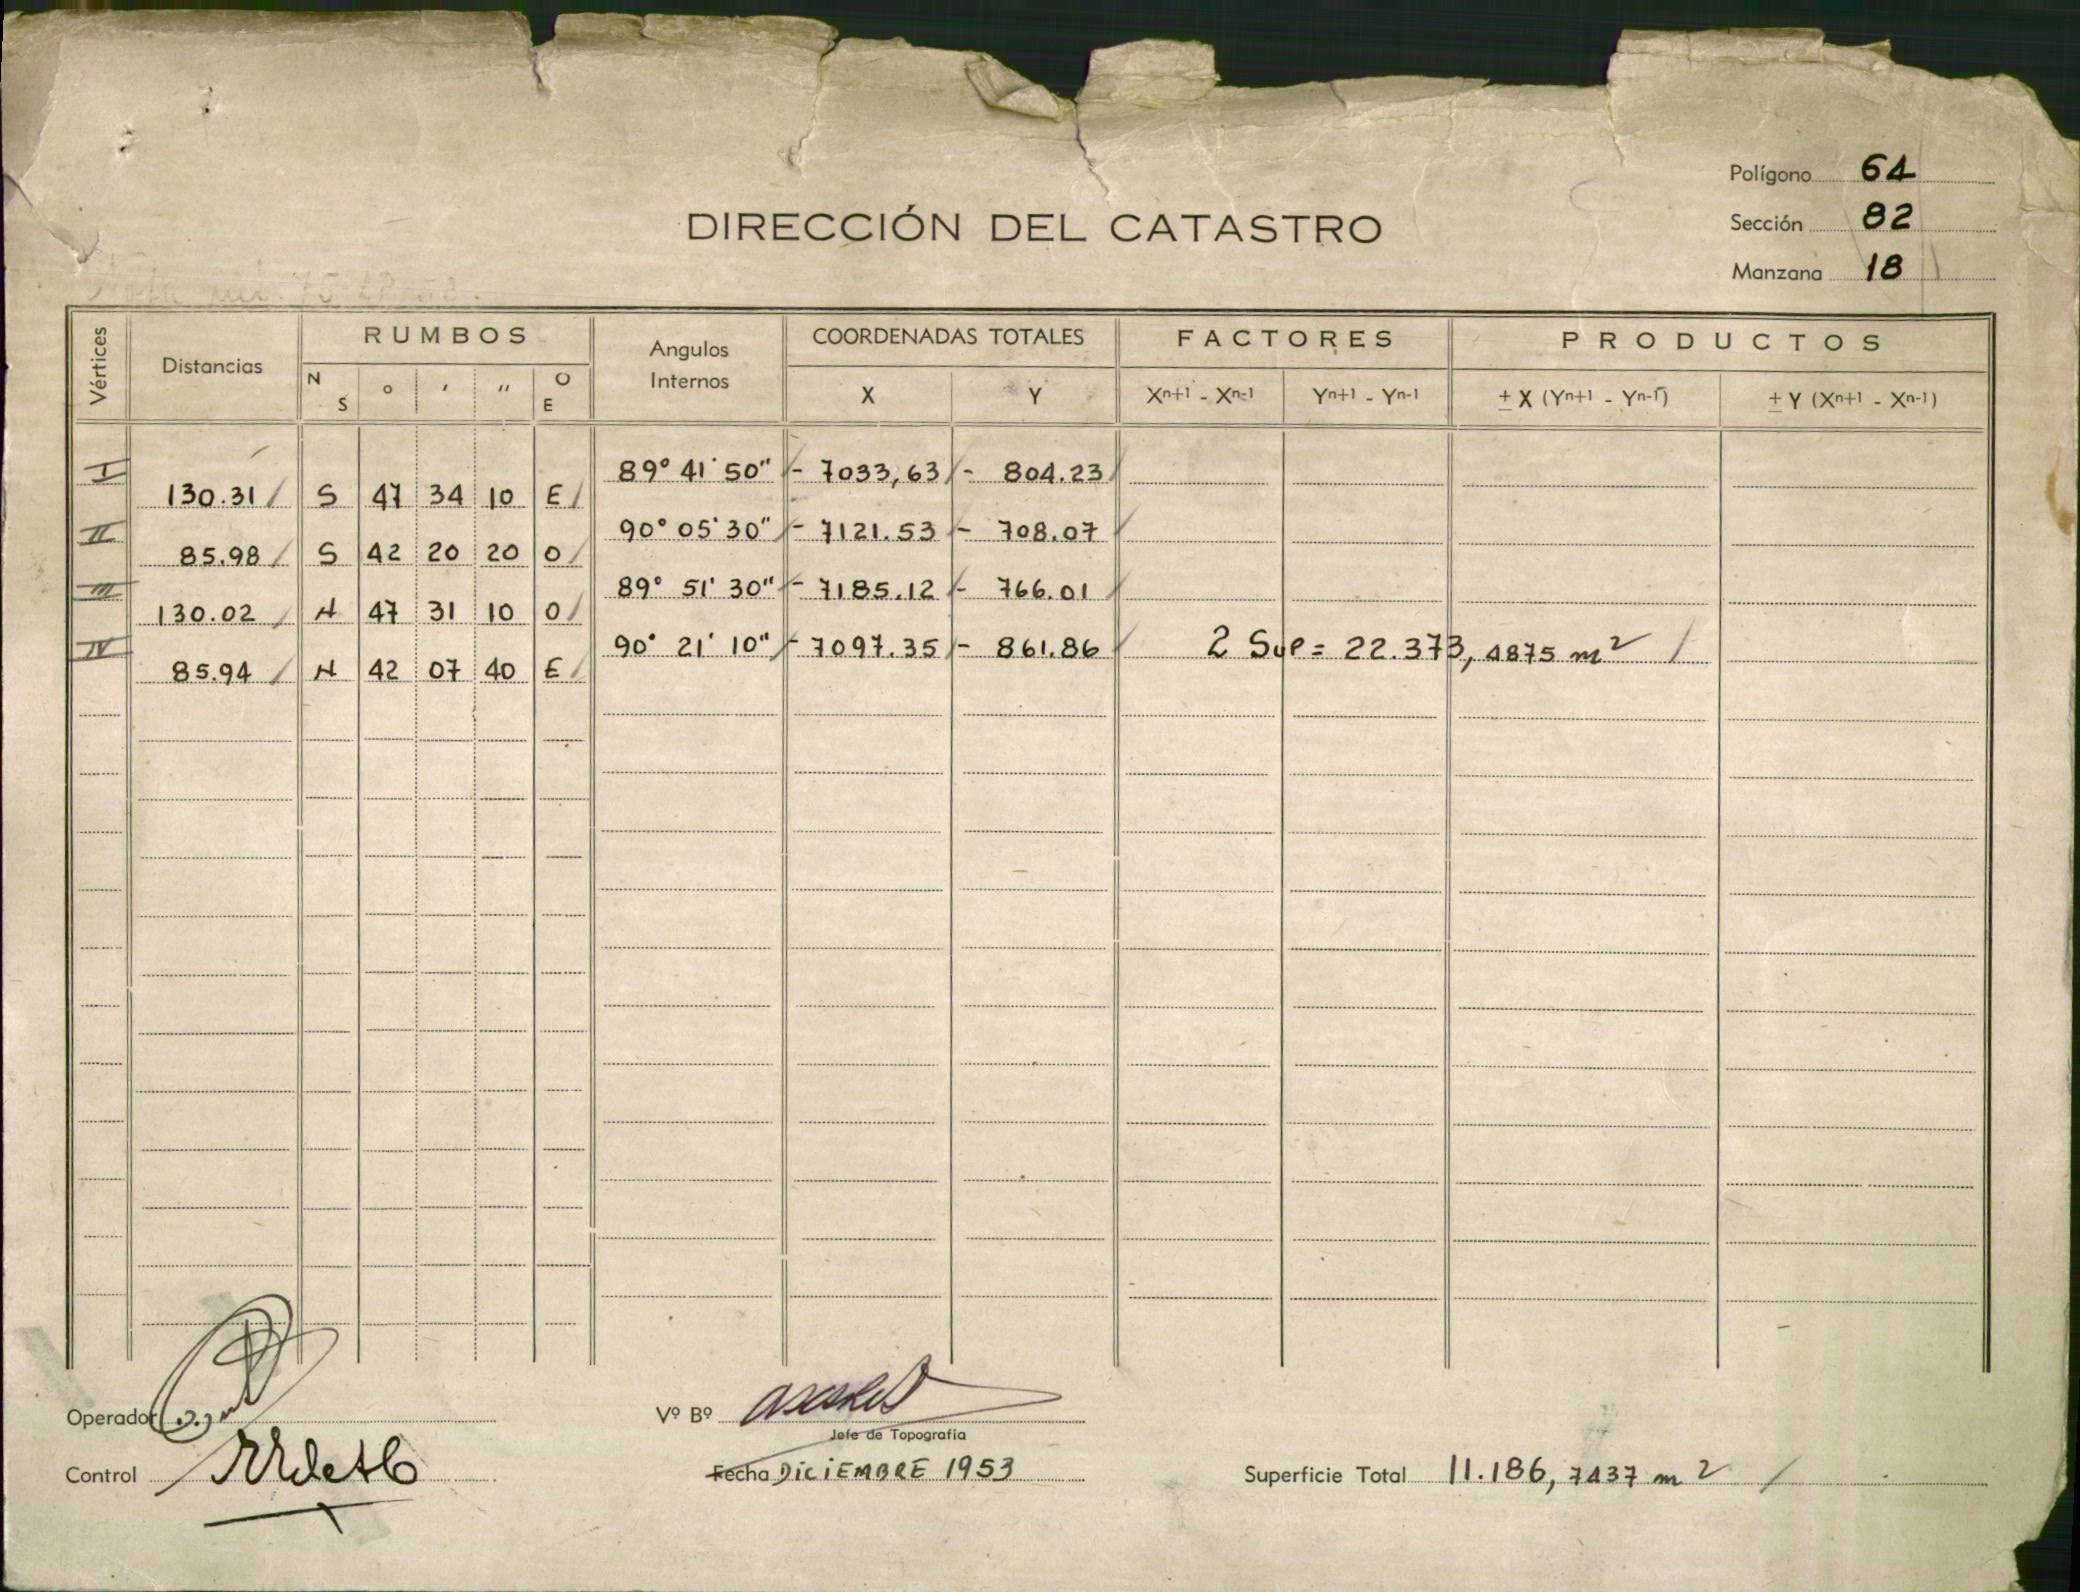 Polígono 64
DIRECCIÓN DEL CATASTRO
Sección 82
Manzana 18
Vértices Distancias RUMBOS Angulos Internos COORDENADAS TOTALES FACTORES PRODUCTOS
N S ° ' " O E X Y Xn+1 - Xn-1 Yn+1 - Yn-1 ± X (Yn+1 - Yn-1) ± Y (Xn+1 - Xn-1)
I 89° 41' 50" - 7033,63 - 804.23
130.31 S 47 34 10 E
II 90° 05' 30" - 7121.53 - 708.07
85.98 S 42 20 20 O
III 89° 51' 30" - 7185.12 - 766.01
130.02 N 47 31 10 O
IV 90° 21' 10" - 7097.35 - 861.86 2 Sup = 22.373,4875 m2
85.94 N 42 07 40 E
Operador
Vº Bº
Jefe de Topografía
Control
Fecha DICIEMBRE 1953
Superficie Total 11.186,7437 m2